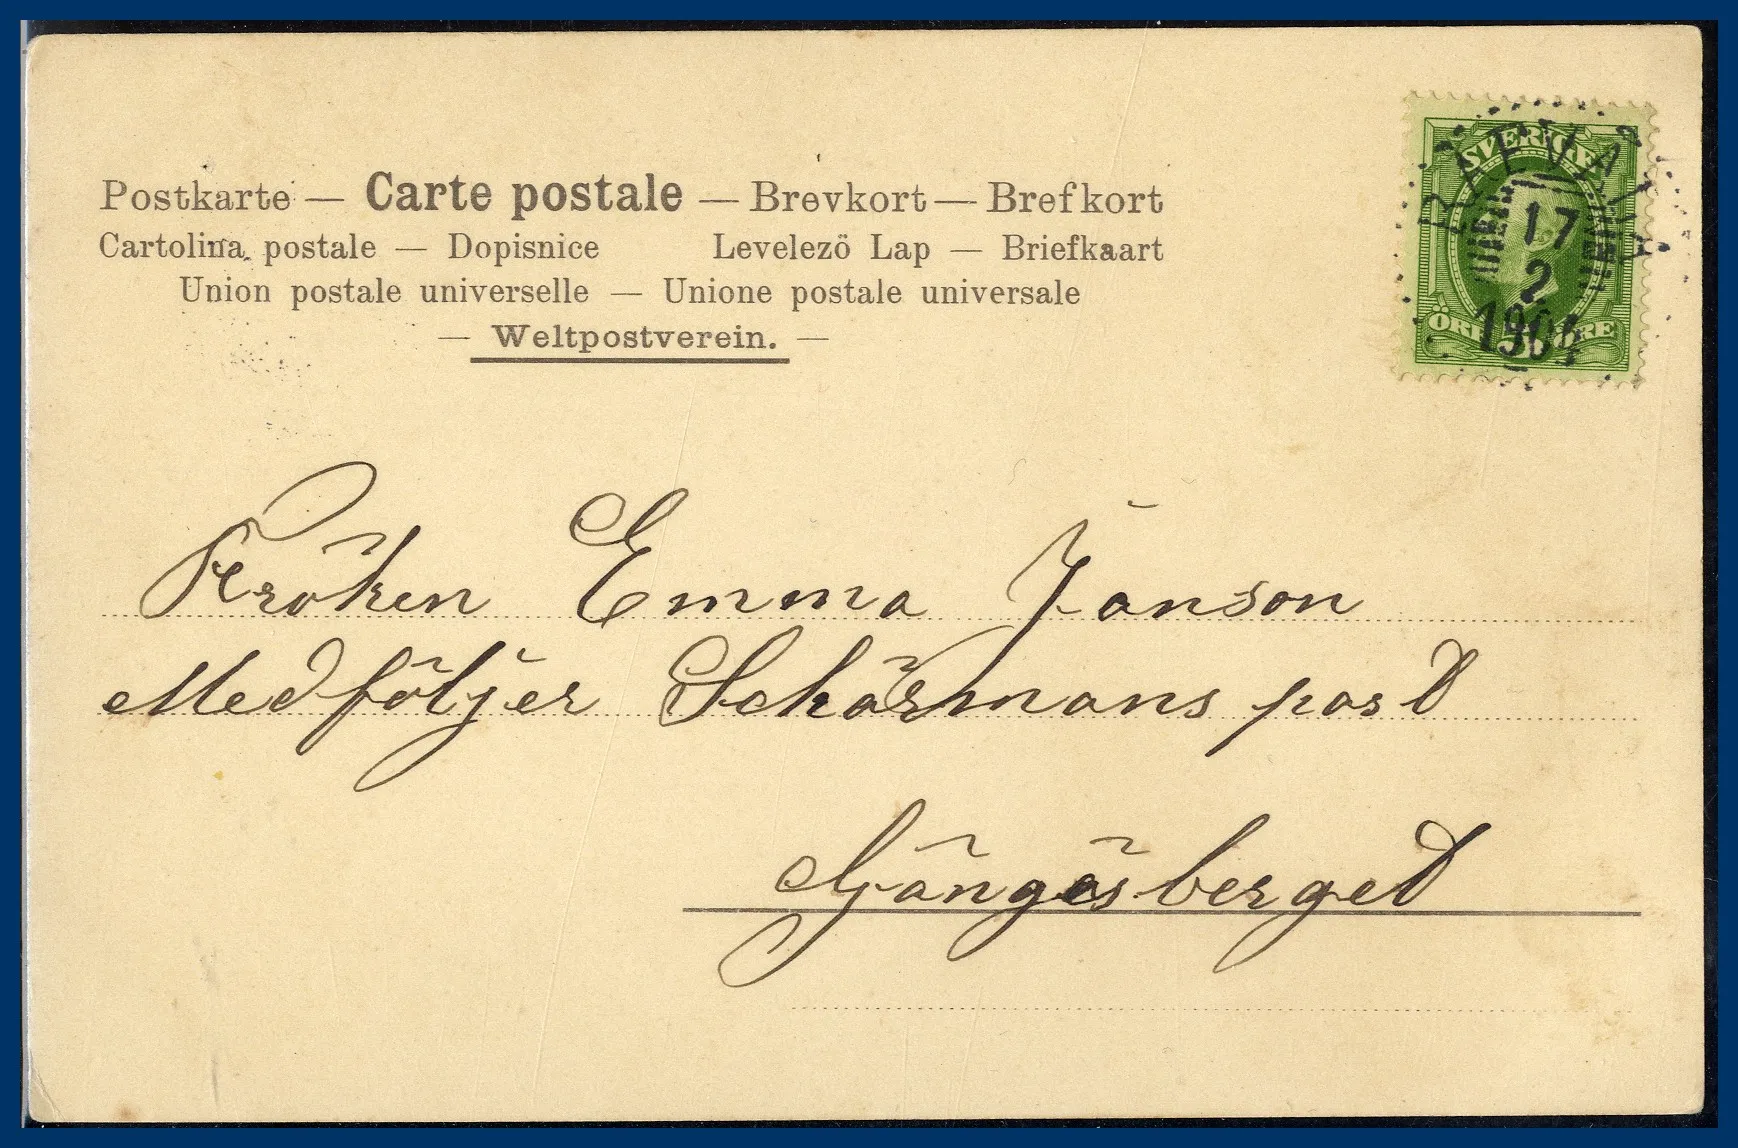 Postkarte — Carte postale — Brevkort — Brefkort
Cartolina postale — Dopisnice Levelezö Lap — Briefkaart
Union postale universelle — Unione postale universale
— Weltpostverein. —
SVERIGE
17
2
1904
ÖRE 5 ÖRE
Fröken Emma Janson
Medföljer Schärmans post
Gängesberget